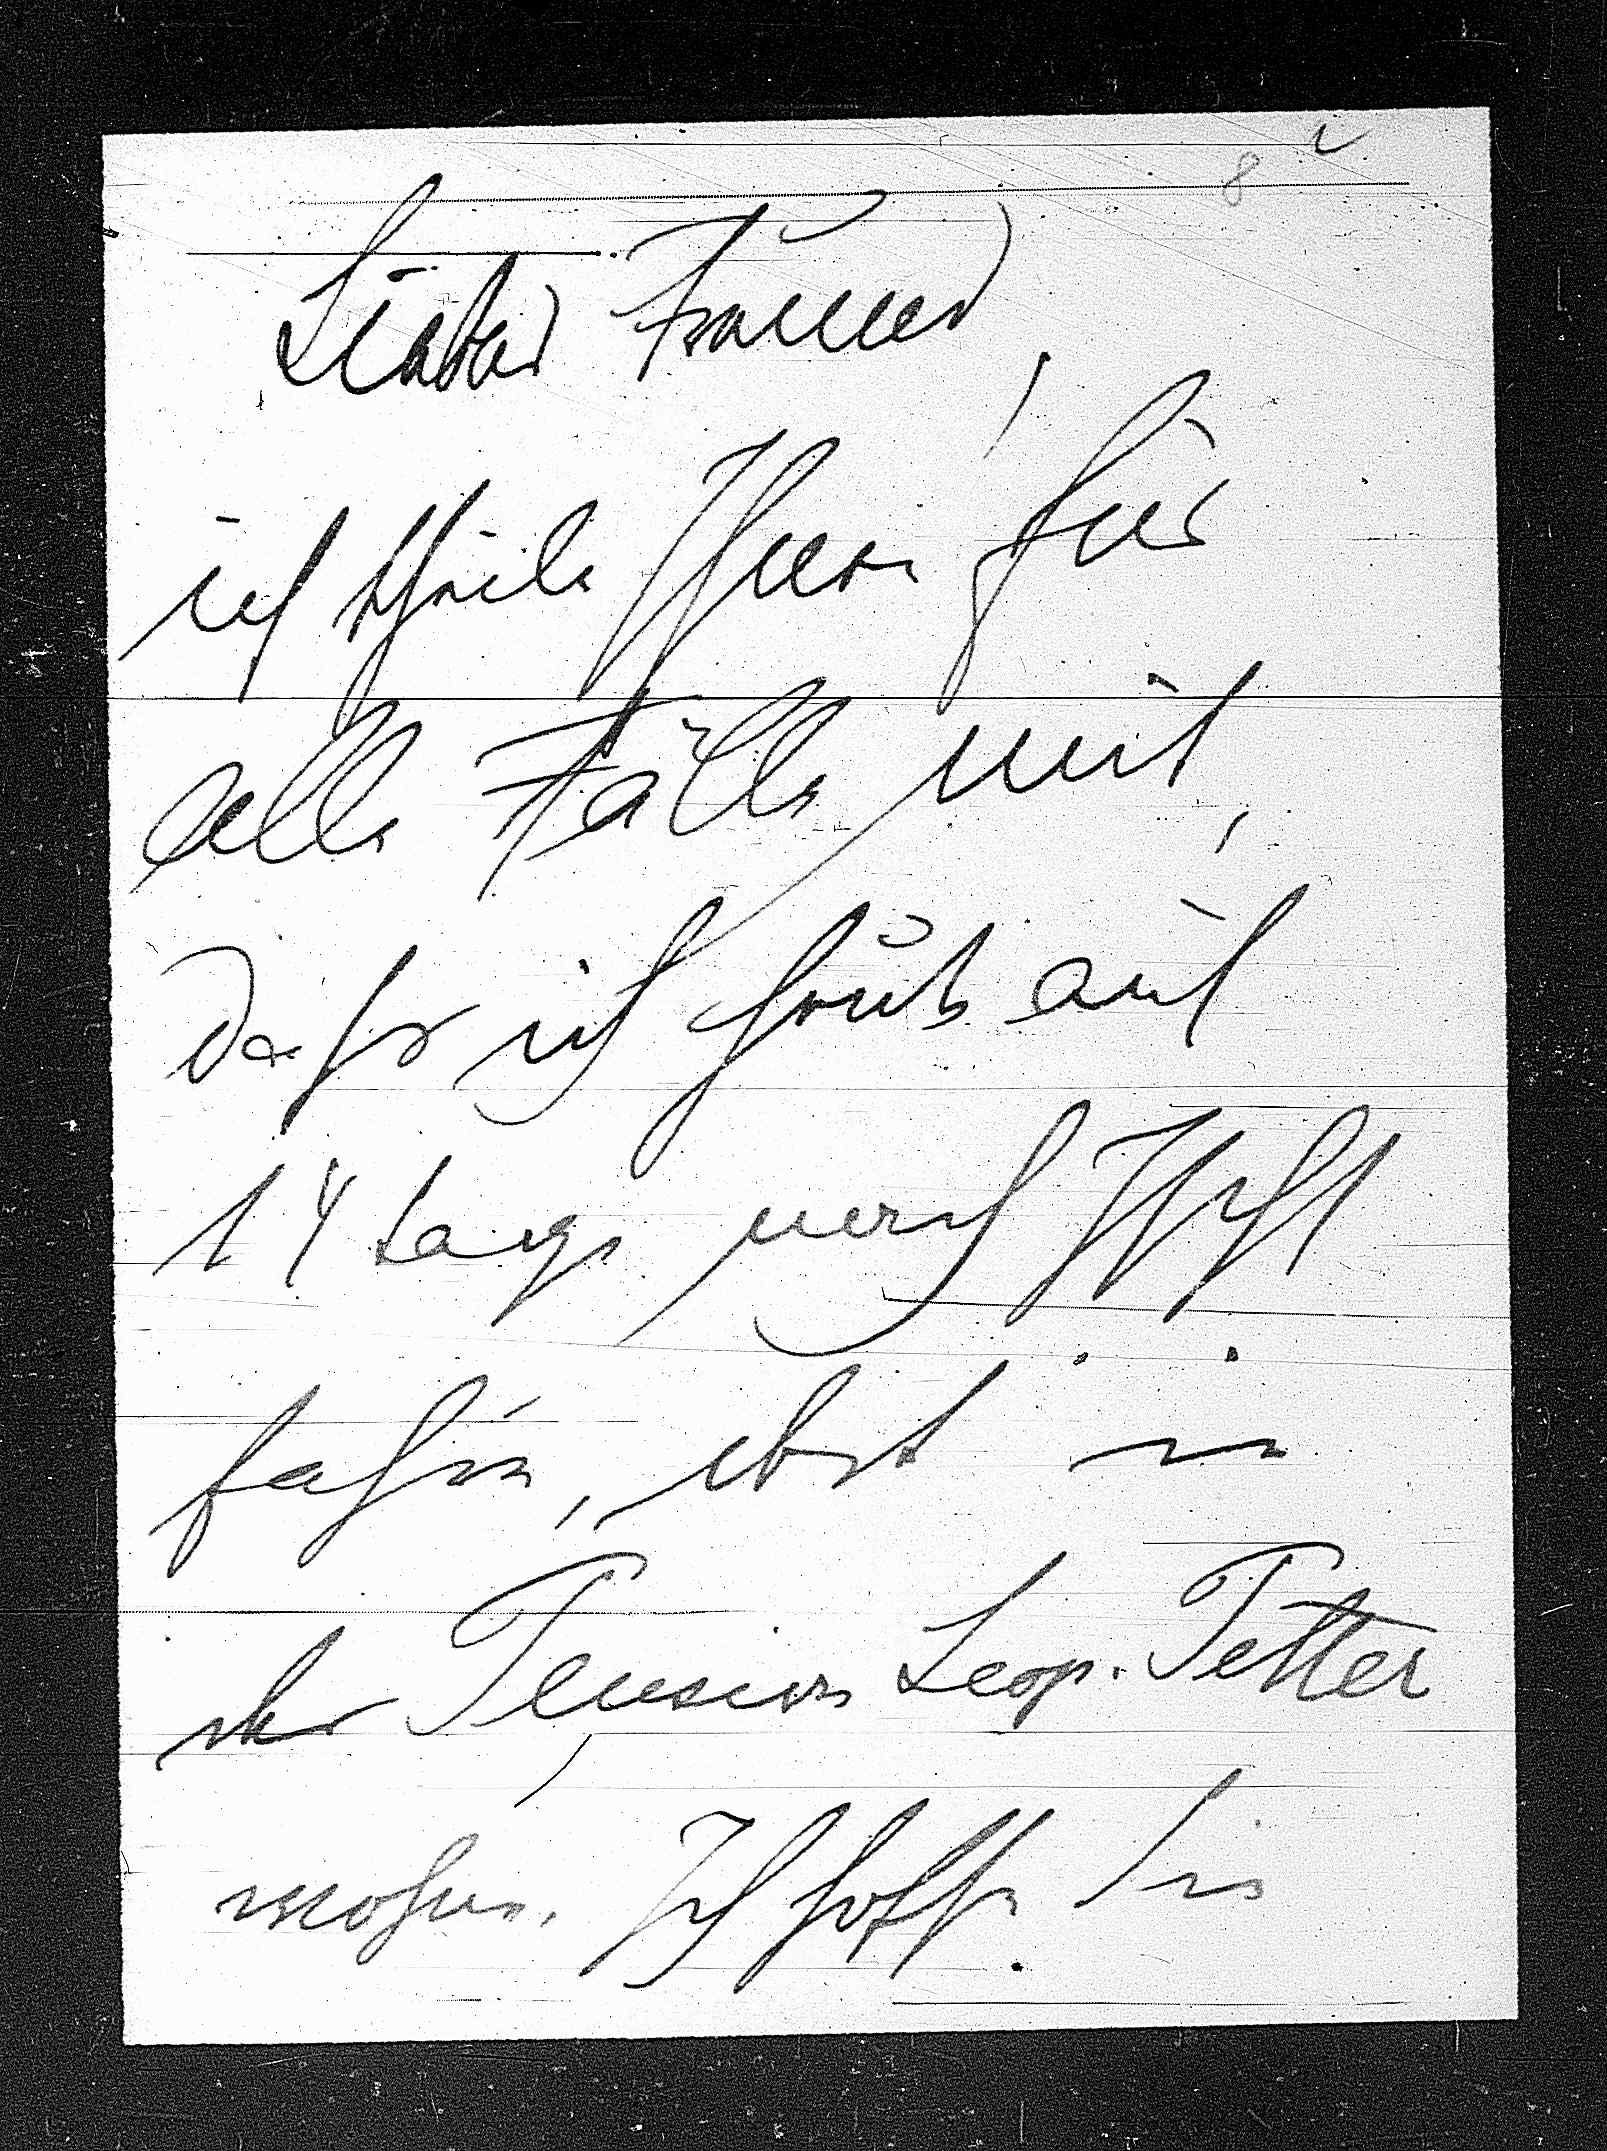 8
Lieber Freund,
ich theile Ihnen für
alle Fälle mit,
dass ich heute auf
14 Tage nach Ischl
fahre, dort in
der Pension Leop. Petter
wohne. Ich hoffe Sie